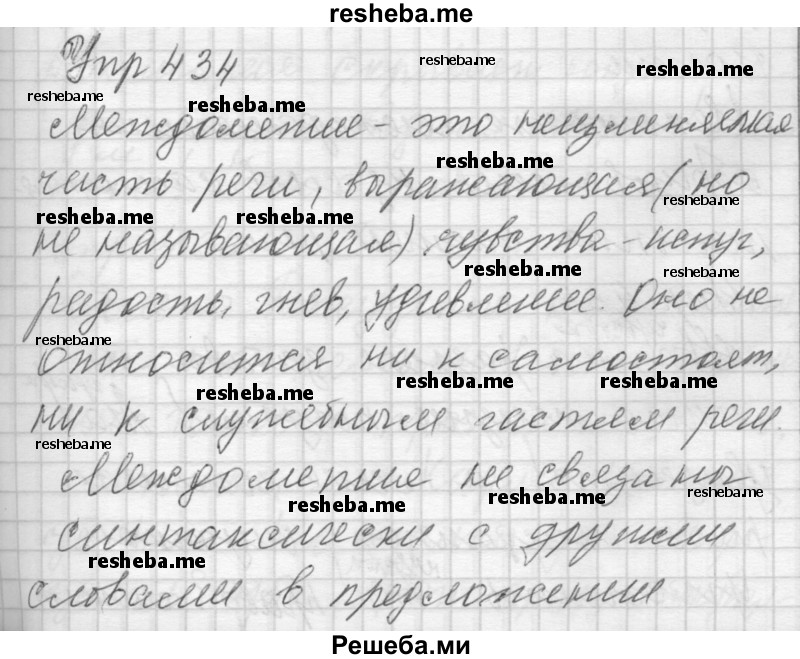 resheba.me
Упр 434
resheba.me
resheba.me
resheba.me
resheba.me
Междометие - это неизменяемая
resheba.me
часть речи, выражающая (но
resheba.me
resheba.me
resheba.me
не называющая) чувства - испуг,
resheba.me
resheba.me
радость, гнев, удивление. Оно не
resheba.me
относится ни к самостоят,
resheba.me
resheba.me
resheba.me
ни к служебным частям речи.
resheba.me
Междометие не связаны
resheba.me
resheba.me
resheba.me
синтаксически с другими
resheba.me
словами в предложении
Решеба.ми